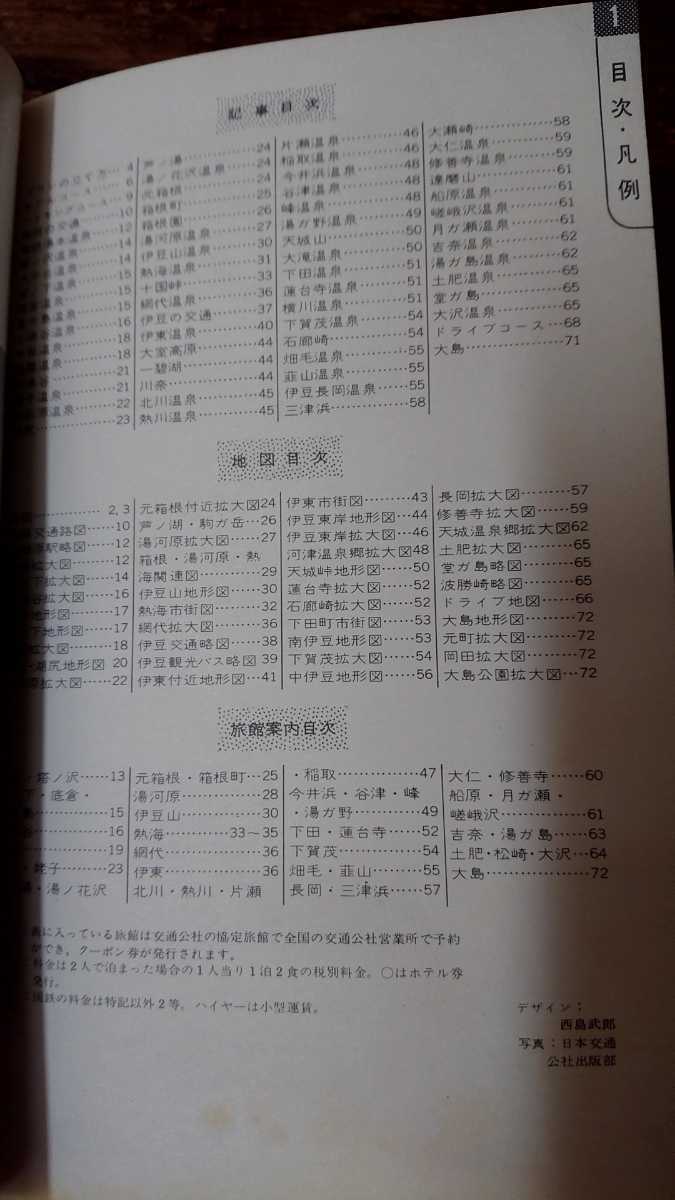 1
目次・凡例
記事目次
4
6
9
の交通…………10
12
14
14
15
15
15
16
18
18
21
21
22
23
芦ノ湯…………24
湯ノ花沢温泉……24
元箱根…………24
箱根町…………25
箱根園…………26
湯河原温泉……27
伊豆山温泉……30
熱海温泉………31
十国峠…………33
網代温泉………36
伊豆の交通……37
伊東温泉………40
大室高原………44
一碧湖…………44
川奈……………44
北川温泉………45
熱川温泉………45
片瀬温泉………46
稲取温泉………46
今井浜温泉……48
谷津温泉………48
峰温泉…………48
湯ガ野温泉……49
天城山…………50
大滝温泉………50
下田温泉………51
蓮台寺温泉……51
横川温泉………51
下賀茂温泉……54
石廊崎…………54
畑毛温泉………55
韮山温泉………55
伊豆長岡温泉…55
三津浜…………58
大瀬崎…………58
大仁温泉………59
修善寺温泉……59
達磨山…………61
船原温泉………61
嵯峨沢温泉……61
月ガ瀬温泉……61
吉奈温泉………62
湯ガ島温泉……62
土肥温泉………65
堂ガ島…………65
大沢温泉………65
ドライブコース…68
大島……………71
地図目次
2, 3
交通路図……10
駅略図………12
拡大図………12
下拡大図……14
谷拡大図……16
地形図………17
下地形図……17
拡大図………18
・湖尻地形図 20
原拡大図……22
元箱根付近拡大図24
芦ノ湖・駒ガ岳…26
湯河原拡大図……27
箱根・湯河原・熱
海関連図………29
伊豆山地形図…30
熱海市街図……32
網代拡大図……36
伊豆交通略図…38
伊豆観光バス略図 39
伊東付近地形図…41
伊東市街図………43
伊豆東岸地形図…44
伊豆東岸拡大図…46
河津温泉郷拡大図48
天城峠地形図……50
蓮台寺拡大図……52
石廊崎拡大図……52
下田町市街図……53
南伊豆地形図……53
下賀茂拡大図……54
中伊豆地形図……56
長岡拡大図………57
修善寺拡大図……59
天城温泉郷拡大図62
土肥拡大図………65
堂ガ島略図………65
波勝崎略図………65
ドライブ地図……66
大島地形図………72
元町拡大図………72
岡田拡大図………72
大島公園拡大図…72
旅館案内目次
・塔ノ沢……13
下・底倉・
15
16
19
・姥子………23
・湯ノ花沢
元箱根・箱根町…25
湯河原…………28
伊豆山…………30
熱海………33～35
網代……………36
伊東……………36
北川・熱川・片瀬
・稲取…………47
今井浜・谷津・峰
・湯ガ野………49
下田・蓮台寺……52
下賀茂…………54
畑毛・韮山………55
長岡・三津浜……57
大仁・修善寺……60
船原・月ガ瀬・
嵯峨沢…………61
吉奈・湯ガ島……63
土肥・松崎・大沢…64
大島……………72
に入っている旅館は交通公社の協定旅館で全国の交通公社営業所で予約
ができ，クーポン券が発行されます。
料金は2人で泊まった場合の1人当り1泊2食の税別料金。○はホテル券
発行。
国鉄の料金は特記以外2等。ハイヤーは小型運賃。
デザイン；
西島武郎
写真：日本交通
公社出版部